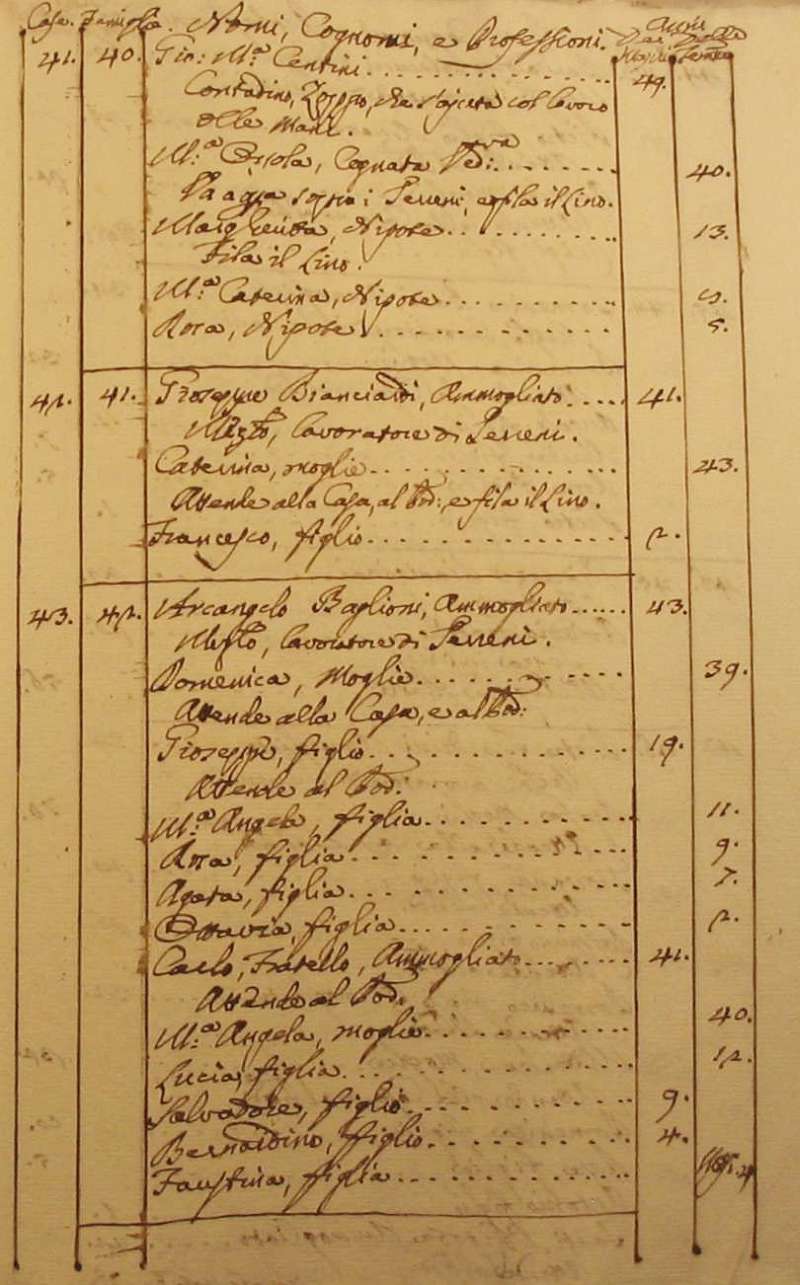 Casa. Famiglia. Nomi, Cognomi, e Professioni. Anni
Dei Maschi Delle Femine
41. 40. Gio: M.ª Centini 49.
Contadino, Zoppo, che s'ajuta col lavoro
delle Mani.
M.ª Orsola, Cognata Ved:va 40.
Va a gior sopra i Terreni, e fila il Lino.
Margherita, Nipote 13.
Fila il Lino.
M.ª Caterina, Nipote 9.
Rosa, Nipote 5.
42. 41. Gioseppe Bianciardi, Ammogliato 41.
lavoratore di Terreni.
Caterina, moglie 43.
Attende alla Casa, al Pod: e fila il Lino.
Francesco, figlio 2.
43. 42. Arcangelo Baglioni, Ammogliato 43.
lavoratore di Terreni.
Domenica, Moglie 39.
Attende alla Casa, e al Pod:
Gioseppe, figlio 19.
Attende al Pod:
M.ª Angela, figlia 11.
Rosa, figlia 9.
Agata, figlia 7.
Ottavia, figlia 2.
Carlo, Fratello, Ammogliato 41.
Attende al Pod:
M.ª Angela, moglie 40.
Lucia, figlia 12.
Salvadore, figlio 9.
Bernardino, figlio 4.
Faustina, figlia